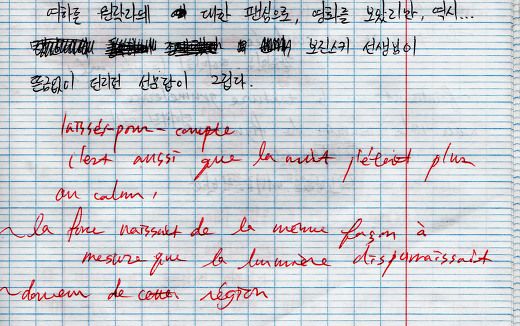 영화를 원작과의 대한 팬심으로, 영화를 보았지만, 역시...
보진스키 선생님이
뜬금없이 던지던 선문답이 그립다.
laissés-pour-compte
c'est aussi que la nuit j'étais plus
au calme,
~ la force naissait de la même façon à
mesure que la lumière disparaissait
~ douceur de cette région